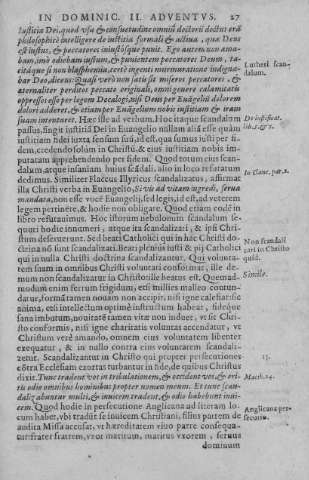 IN DOMINIC. II. ADVENTVS. 27
iustitia Dei, quod vsu & consuetudine omniū doctorū doctus erā
philosophicè intelligere de iustitia formali & actiua, qua Deus
est iustus, & peccatores iniustósque punit. Ego autem non ama-
bam, imò odiebam iustum, & punientem peccatores Deum, ta-
citáque si non blasphemia, certè ingenti murmuratione indigna-
bar Deo, dicens: Quasi verò non satis sit miseros peccatores, &
æternaliter perditos peccato originali, omni genere calamitatis
oppressos esse per legem Decalogi, nisi Deus per Euāgeliū dolorem
dolori adderet, & etiam per Euāgelium nobis iustitiam & iram
suam intentaret. Hæc ille ad verbum. Hoc itaque scandalum
passus, fingit iustitiā Dei in Euangelio nullam aliā esse quàm
iustitiam fidei iuxta sensum suū, id est, qua sumus iusti per fi-
dem, credendo solùm in Christū, & eius iustitiam nobis im-
putatam apprehendendo per fidem. Quod totum eius scan-
dalum, atque insaniam huius scādali, alio in loco refutatum
dedimus. Similiter Flaccus Illyricus scandalizatus, affirmat
illa Christi verba in Euangelio, Si vis ad vitam ingredi, serua
mandata, non esse vocē Euangelij, sed legis, id est, ad veterem
legem pertinere, & hodie non obligare. Quod etiam eodē in
libro refutauimus. Hoc istorum nebulonum scandalum se-
quuti hodie innumeri, atque ita scandalizati, & ipsi Chri-
stum deseruerunt. Sed beati Catholici qui in hâc Christi do-
ctrina nō sunt scandalizati. Beati plenius iusti & pij Catholici
qui in nulla Christi doctrina scandalizantur. Qui volunta-
tem suam in omnibus Christi voluntati conformat, ille de-
mum non scandalizatur in Christo: ille beatus est. Quemad-
modum enim ferrum frigidum, etsi millies malleo contun-
datur, formā tamen nouam non accipit, nisi igne calefiat: sic
anima, etsi intellectum optimè instructum habeat, fidéque
sana imbutum, nouitatē tamen vitæ non induet, vt sit Chri-
sto conformis, nisi igne charitatis voluntas accendatur, vt
Christum verè amando, omnem eius voluntatem libenter
exequatur, & in nullo contra eius voluntatem scandali-
zetur. Scandalizantur in Christo qui propter persecutiones
cōtra Ecclesiam exortas turbantur in fide, de quibus Christus
dixit. Tunc tradent vos in tribulationem, & occident vos, & eri-
tis odio omnibus hominibus propter nomen meum. Et tunc scan-
dalizabuntur multi, & inuicem tradent, & odio habebunt inui-
cem. Quod hodie in persecutione Anglicana ad literam lo-
cum habet, vbi tradūt se inuicem Christiani, filius patrem de
audita Missa accusat, vt hæreditatem viuo patre consequa-
tur: frater fratrem, vxor maritum, maritus vxorem, seruus
dominum
Lutheri scan-
dalum.
De iustificat.
In Cant. par. 2.
Non scandali
zari in Christo
quid.
Simile.
13.
Matth. 24.
Anglicana per-
secutio.